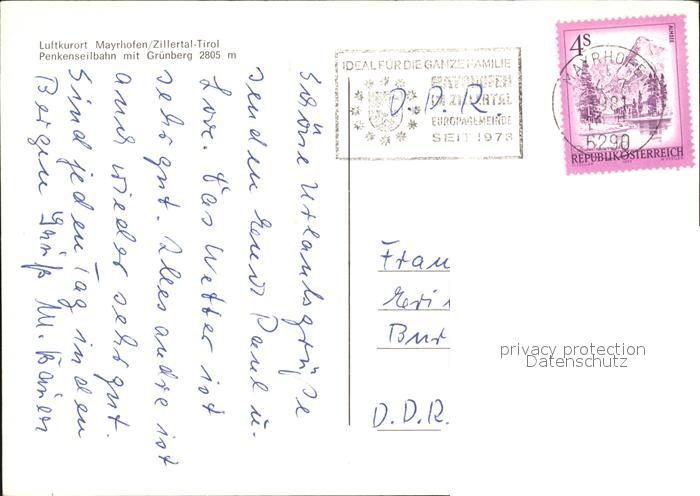 Luftkurort Mayrhofen/Zillertal-Tirol
Penkenseilbahn mit Grünberg 2805 m
IDEAL FÜR DIE GANZE FAMILIE
MAYRHOFEN
IM ZILLERTAL
EUROPAGEMEINDE
SEIT 1973
D.D.R
4S
ALMSEE
REPUBLIK ÖSTERREICH
MAYRHOFEN
1981
6290
Schöne Urlaubsgrüße
senden Euch Paul u.
Lore. Das Wetter ist
sehr gut. Alles andre ist
auch wieder sehr gut.
Sind jeden Tag in den
Bergen Grüß M.
Frau
D.D.R.
privacy protection
Datenschutz